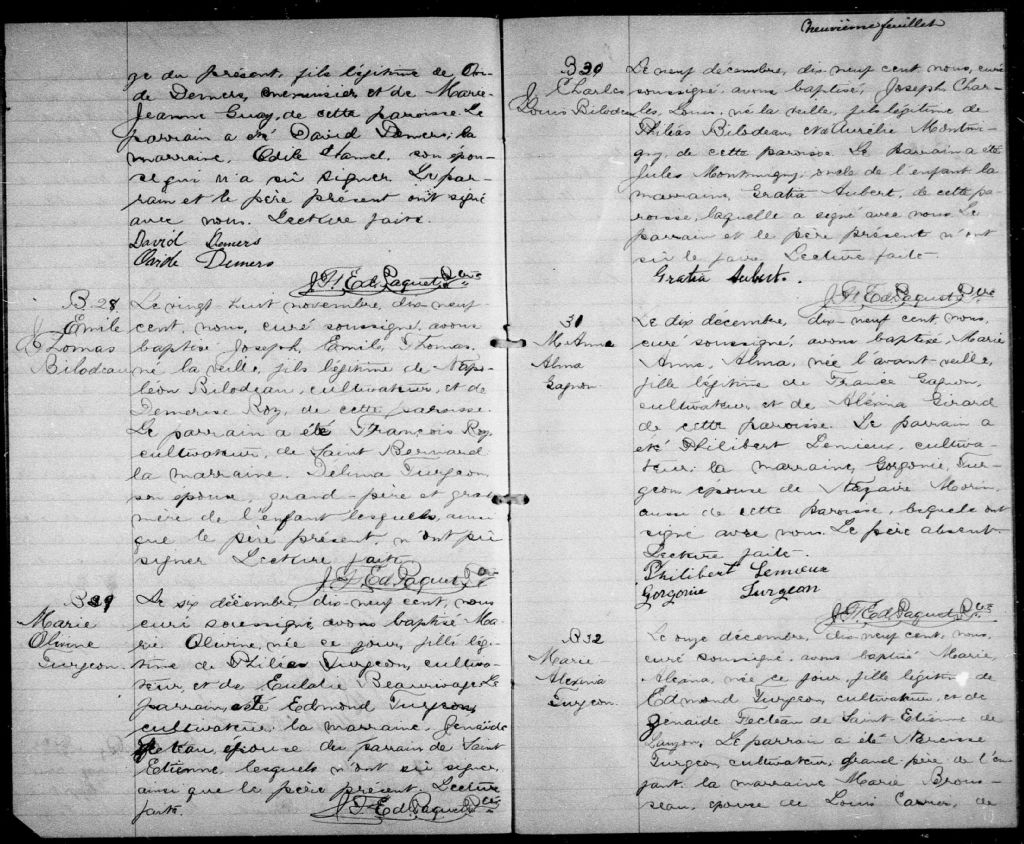 ge du présent, fils légitime de Ova-
de Demers, menuisier et de Marie
Jeanne Guay, de cette paroisse. Le
parrain a été David Demers; la
marraine, Odile Hamel, son épou-
se qui n'a su signer. Le par-
rain et le père présent ont signé
avec nous. Lecture faite.
David Demers
Demers
J. Ed. Paquet, Ptre
B. 28
J.
Emile
Thomas
Bilodeau
Le vingt huit novembre, dix-neuf
cent, nous, curé soussigné, avons
baptisé Joseph, Emile, Thomas,
né la veille, fils légitime de Napo-
léon Bilodeau, cultivateur, et de
Demerise Roy, de cette paroisse.
Le parrain a été François Roy,
cultivateur, de Saint Bernard
la marraine, Delima Turgeon,
son épouse, grand-père et grand
mère de l'enfant lesquels, ainsi
que le père présent, n'ont pu
signer Lecture faite.
J. Ed. Paquet, Ptre
B 29
Marie
Olivine
Turgeon
Le six décembre, dix-neuf cent, nous
curé soussigné avons baptisé Ma-
rie Olivine, née ce jour, fille légi-
time de Philias Turgeon, cultiva-
teur, et de Eulalie Beaurivage. Le
parrain, été Edmond Turgeon,
cultivateur; la marraine, Zenaïde
Fecteau, épouse du parrain de Saint
Etienne, lesquels n'ont su signer,
ainsi que le père présent. Lecture
faite.
J. Ed. Paquet, Ptre
Neuvième feuillet
B 30
J. Charles
Louis Bilodeau
Le neuf décembre, dix neuf cent nous, curé
soussigné avons baptisé, Joseph Char-
les, Louis, né la veille, fils légitime de
Philias Bilodeau, et de Aurélie Montmi-
gny, de cette paroisse. Le parrain a été
Jules Montmigny, oncle de l'enfant la
marraine, Gratia Aubert, de cette pa-
roisse, laquelle a signé avec nous. Le
parrain et le père présent n'ont
su le faire. Lecture faite.
Gratia Aubert.
J. Ed. Paquet, Ptre
31
M. Anna
Alma
Gagnon.
Le dix décembre, dix-neuf cent, nous,
curé soussigné, avons baptisé, Marie
Anna, Alma, née l'avant-veille,
fille légitime de Gagnon,
cultivateur, et de Alexina Girard
de cette paroisse. Le parrain a
été Philibert Lemieux, cultiva-
teur; la marraine, Gorgonie, Tur-
geon, épouse de Nazaire Morin,
aussi de cette paroisse, lesquels ont
signé avec nous. Le père absent.
Lecture faite.
Philibert Lemieux
Gorgonie Turgeon
J. Ed. Paquet, Ptre
B 32
Marie
Alexina
Turgeon.
Le onze décembre, dix neuf cent, nous,
curé soussigné, avons baptisé Marie,
née ce jour fille légitime de
Edmond Turgeon, cultivateur, et de
Zenaïde Fecteau de Saint-Etienne de
Lauzon. Le parrain a été Narcisse
Turgeon, cultivateur, grand père de l'en-
fant la marraine Marie Brous-
seau, épouse de Louis Carrier, de